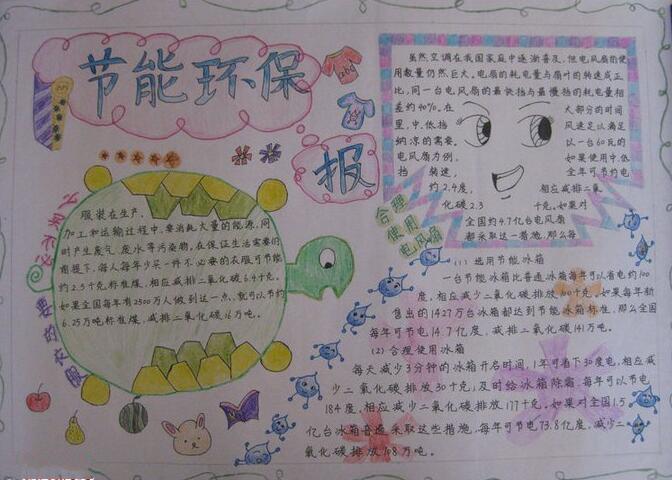 节能环保
报
少买不必要的衣服
服装在生产、
加工和运输过程中,要消耗大量的能源,同
时产生废气、废水等污染物。在保证生活需要的
前提下,每人每年少买一件不必要的衣服可节能
约2.5千克标准煤,相应减排二氧化碳6.4千克。
如果全国每年有2500万人做到这一点,就可以节约
6.25万吨标准煤,减排二氧化碳16万吨。
合理
使用
电风扇
虽然空调在我国家庭中逐渐普及,但电风扇的使
用数量仍然巨大。电扇的耗电量与扇叶的转速成正
比,同一台电风扇的最快挡与最慢挡的耗电量相
差约40%。在
大部分的时间
里,中、低挡
风速足以满足
纳凉的需要。
以一台60瓦的
电风扇为例,
如果使用中、低
挡转速,
全年可节约电
约2.4度,
相应减排二氧
化碳2.3
千克。如果对
全国约4.7亿台电风扇
都采取这一措施,那么每
(1)选用节能冰箱
一台节能冰箱比普通冰箱每年可以省电约100
度,相应减少二氧化碳排放100千克。如果每年新
售出的1427万台冰箱都达到节能冰箱标准,那么全国
每年可节电14.7亿度,减排二氧化碳141万吨。
(2)合理使用冰箱
每天减少3分钟的冰箱开启时间,1年可省下30度电,相应减
少二氧化碳排放30千克;及时给冰箱除霜,每年可以节电
184度,相应减少二氧化碳排放177千克。如果对全国1.5
亿台冰箱普遍采取这些措施,每年可节电73.8亿度,减少二
氧化碳排放708万吨。